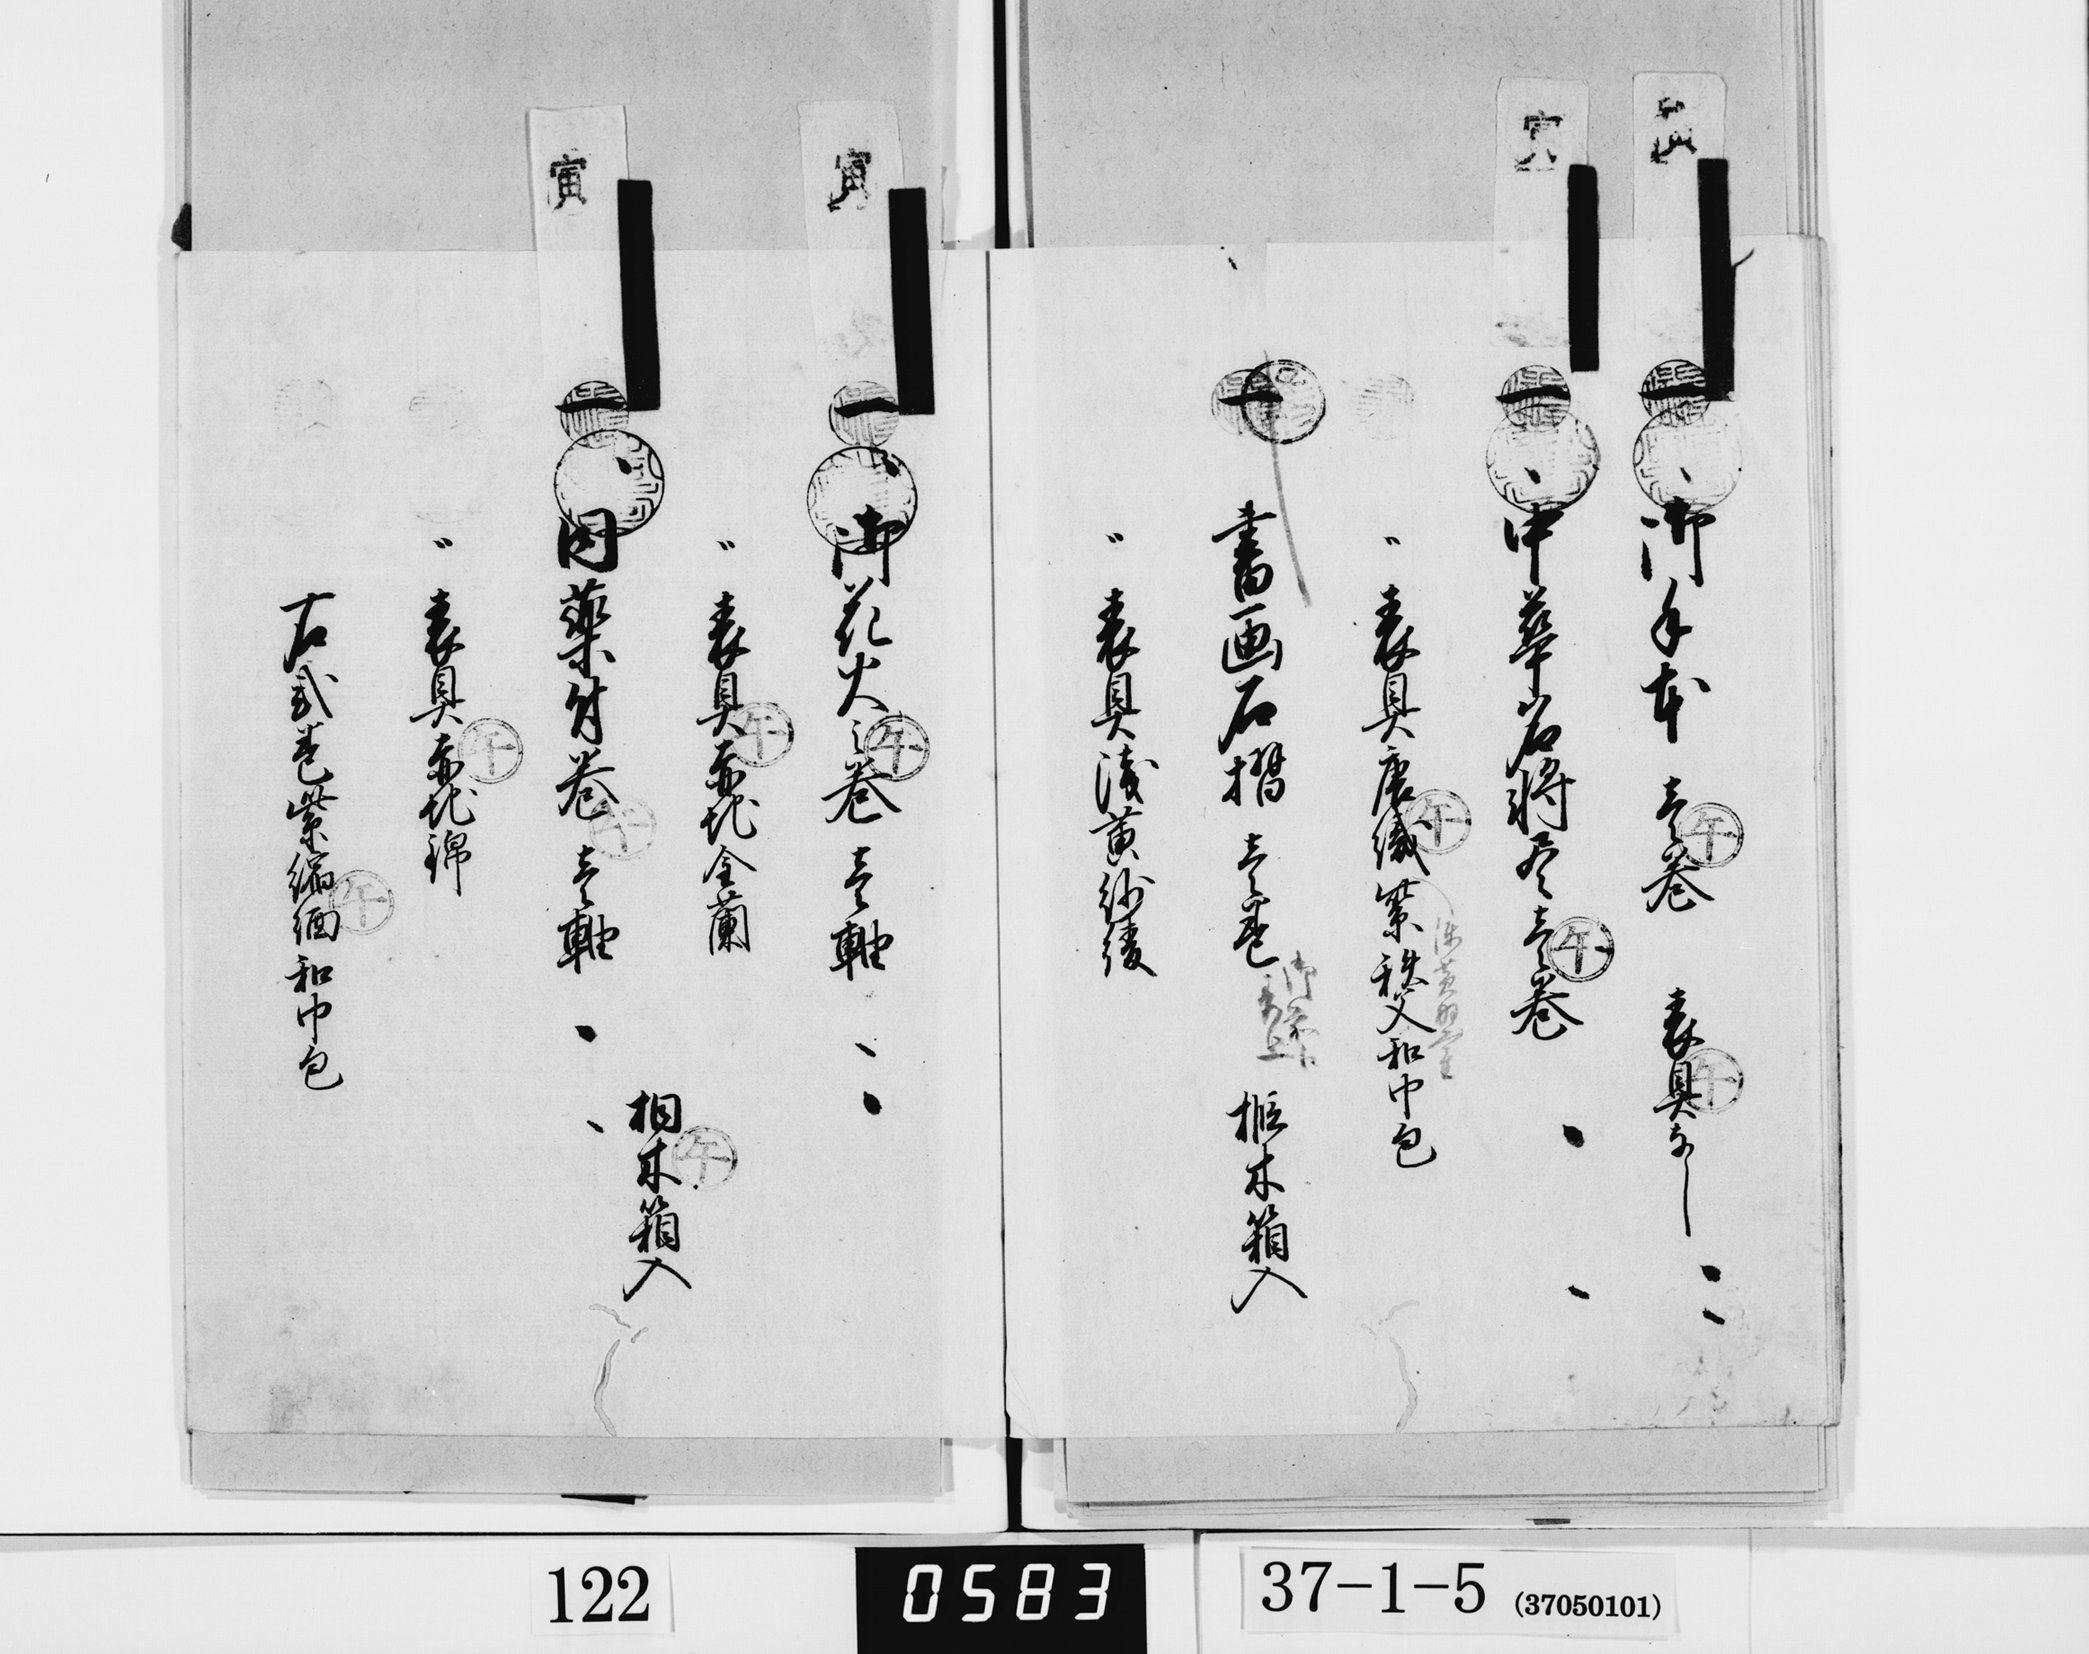 寅
一 御手本 壱巻 表具なし
午
午
寅
一 中華名将尽 壱巻
午
〃 表具唐織 紫秩父和巾包
午
一 書画石摺 壱巻 樅木箱入
〃 表具浅黄紗綾
寅
一 御花火之巻 壱軸
午
〃 表具赤地金蘭
午
桐木箱入
午
寅
一 同薬付巻 壱軸
午
〃 表具赤地錦
午
右弐巻紫縮緬和巾包
午
122
0583
37-1-5 (37050101)